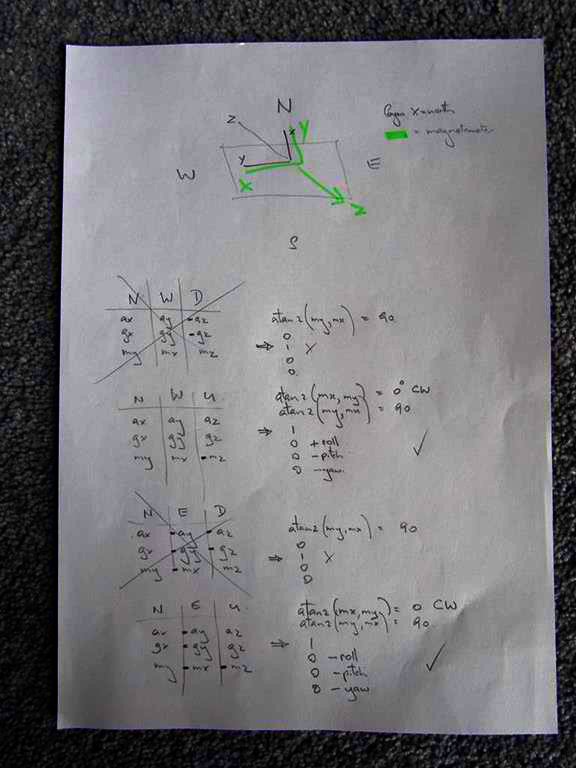 N
Z
x
Y
y
X
Z
W
E
S
X = north
= magnetometer
N W D
ax ay -az
gx gy -gz
my mx mz
atan2(my,mx) = 90
⇒
0
1 X
0
0
N W U
ax ay az
gx gy gz
my mx -mz
atan2(mx,my) = 0° CW
atan2(my,mx) = 90
⇒
1
0 +roll
0 -pitch
0 -yaw
✓
N E D
ax -ay -az
gx -gy -gz
my -mx mz
atan2(my,mx) = 90
⇒
0
1 X
0
0
N E U
ax -ay az
gx -gy gz
my -mx -mz
atan2(mx,my) = 0 CW
atan2(my,mx) = 90
⇒
1
0 -roll
0 -pitch
0 -yaw
✓